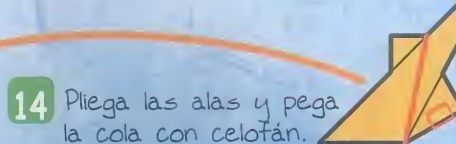 14 Pliega las alas y pega
la cola con celofán.